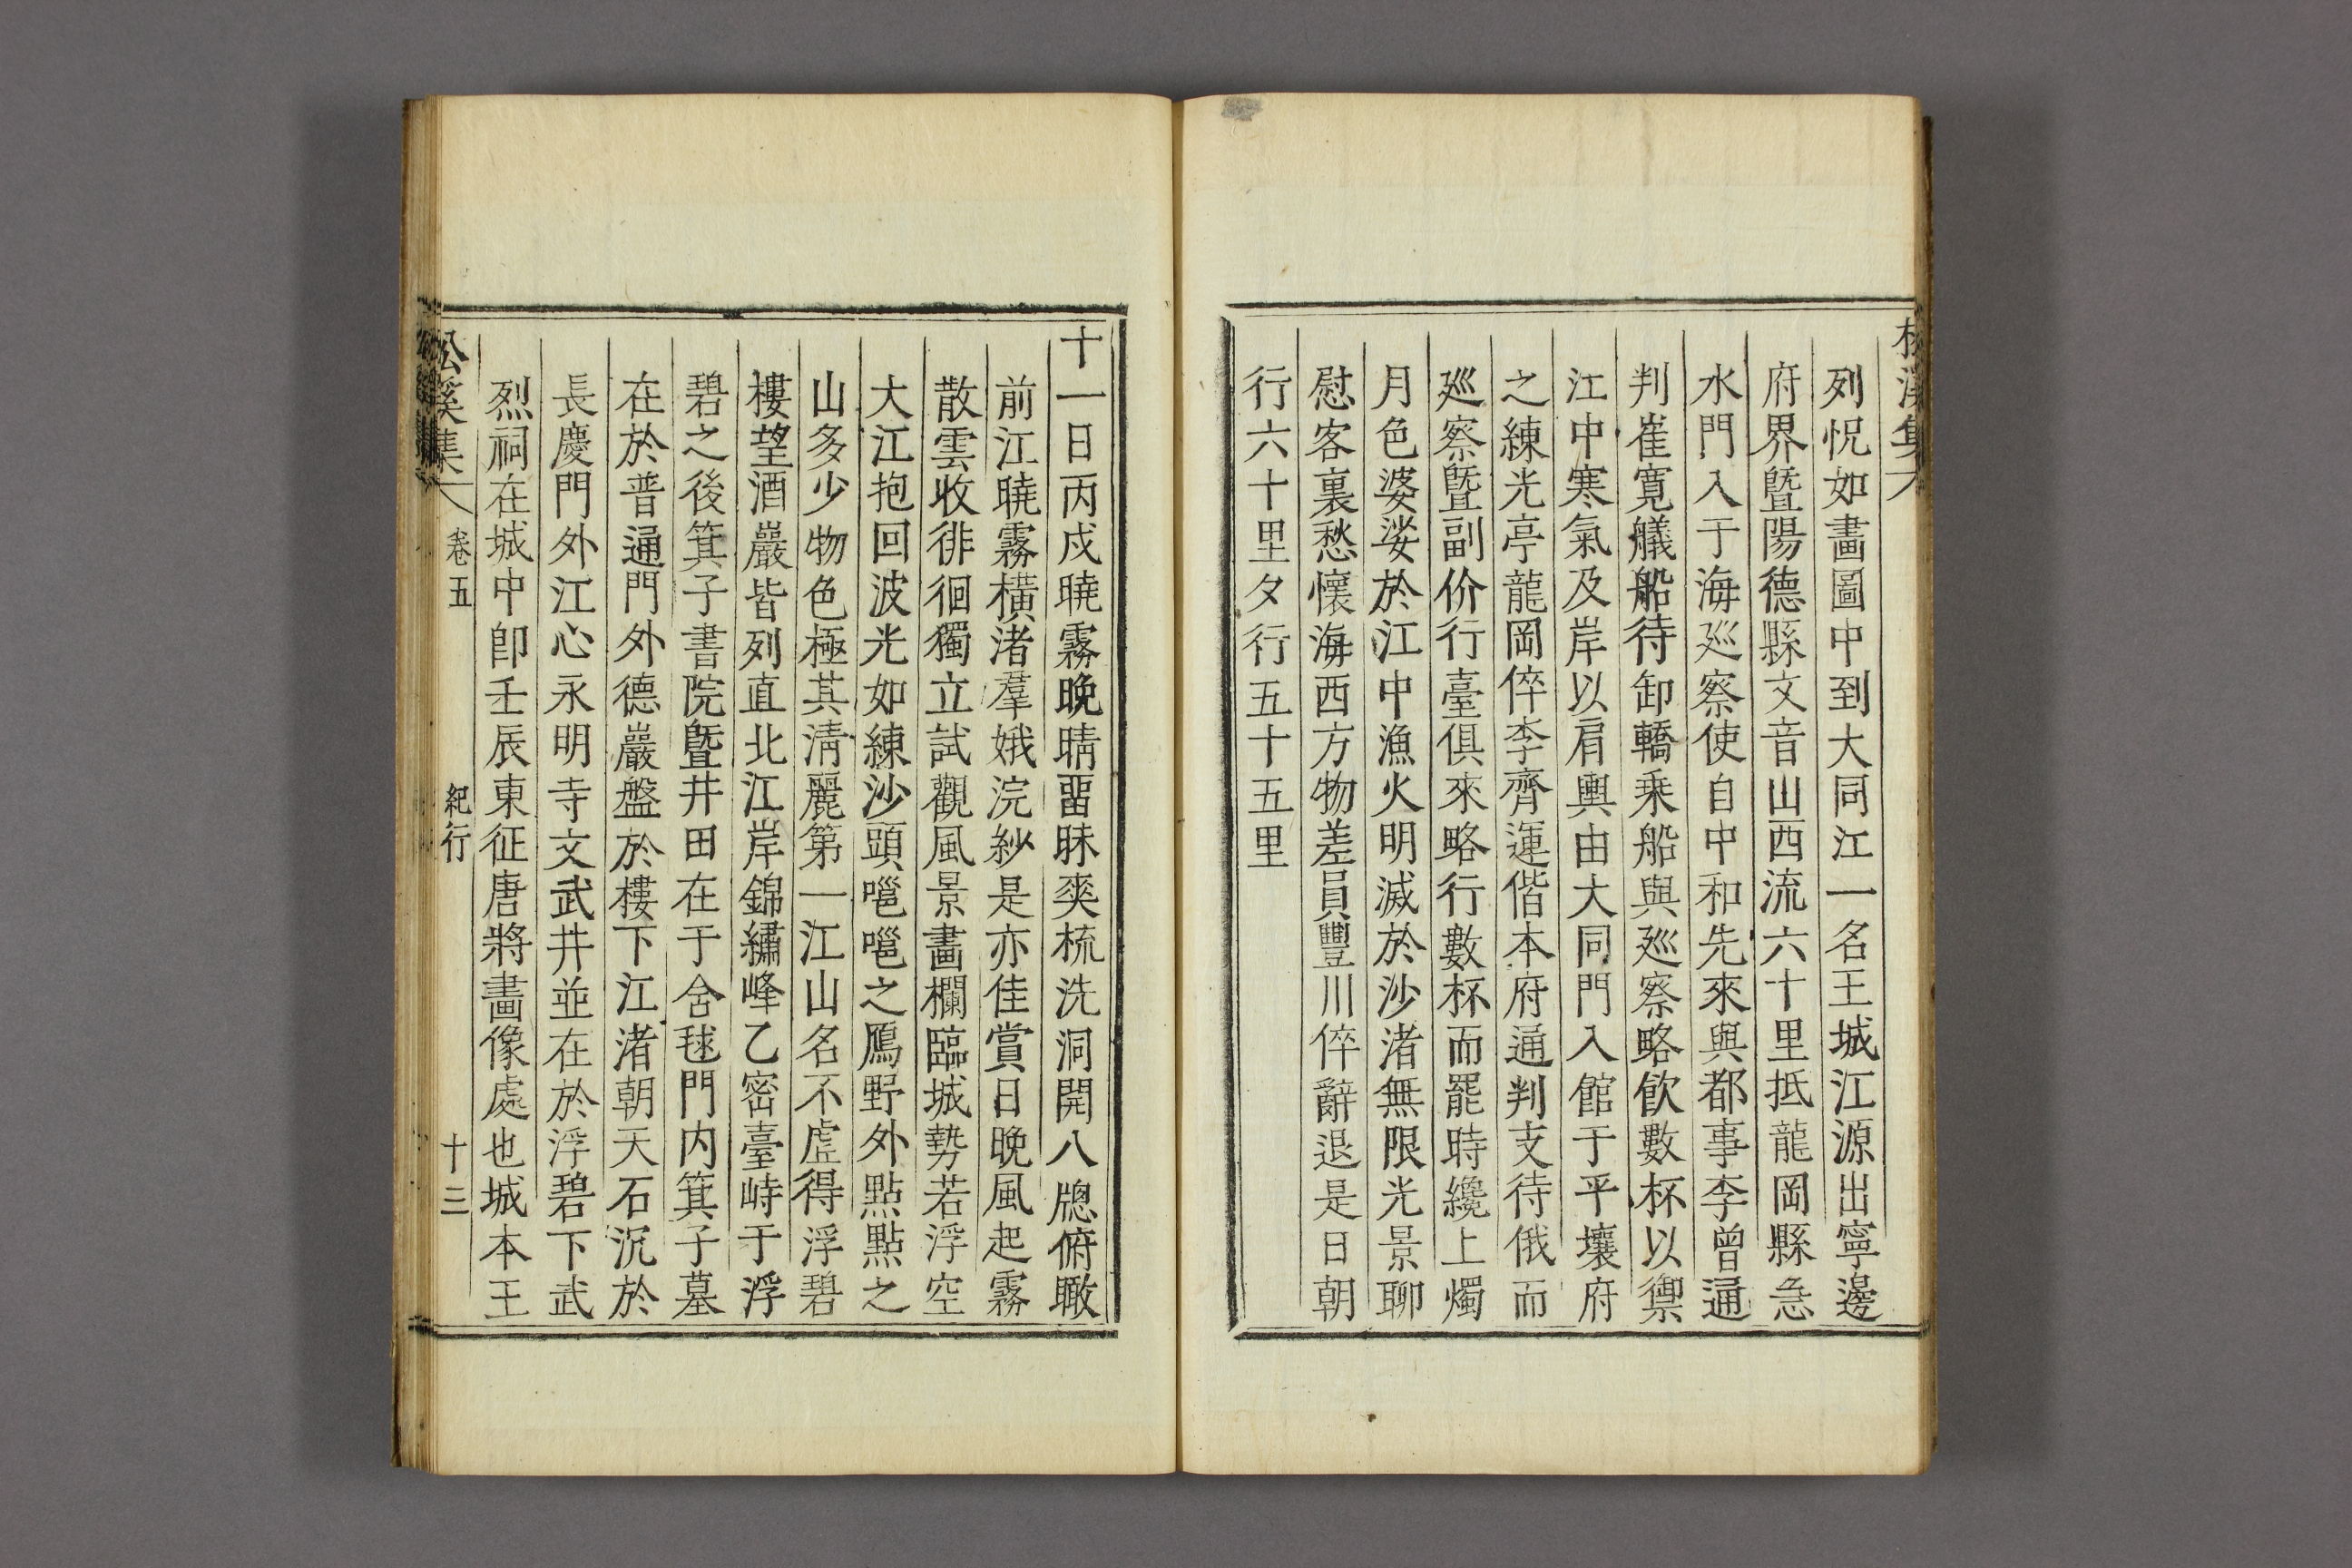 松溪集
列怳如畵圖中到大同江一名王城江源出寧邊
府界曁陽德縣文音山西流六十里抵龍岡縣急
水門入于海廵察使自中和先來與都事李曾通
判崔寛艤船待卸轎乘船與廵察略飮數杯以禦
江中寒氣及岸以肩輿由大同門入館于平壤府
之練光亭龍岡倅李齊運偕本府通判支待俄而
廵察曁副价行臺俱來略行數杯而罷時纔上燭
月色婆娑於江中漁火明滅於沙渚無限光景聊
慰客裏愁懷海西方物差員豐川倅辭退是日朝
行六十里夕行五十五里
十一日丙戌曉霧晚晴畱昧爽梳洗洞開八牎俯瞰
前江曉霧橫渚羣娥浣紗是亦佳賞日晚風起霧
散雲收徘徊獨立試觀風景畵欄臨城勢若浮空
大江抱回波光如練沙頭嗈嗈之鴈野外點點之
山多少物色極其淸麗第一江山名不虛得浮碧
樓望酒巖皆列直北江岸錦繡峰乙密臺峙于浮
碧之後箕子書院曁井田在于含毬門内箕子墓
在於普通門外德巖盤於樓下江渚朝天石沉於
長慶門外江心永明寺文武井並在於浮碧下武
烈祠在城中卽壬辰東征唐將畵像處也城本王
松溪集 卷五 紀行 十三